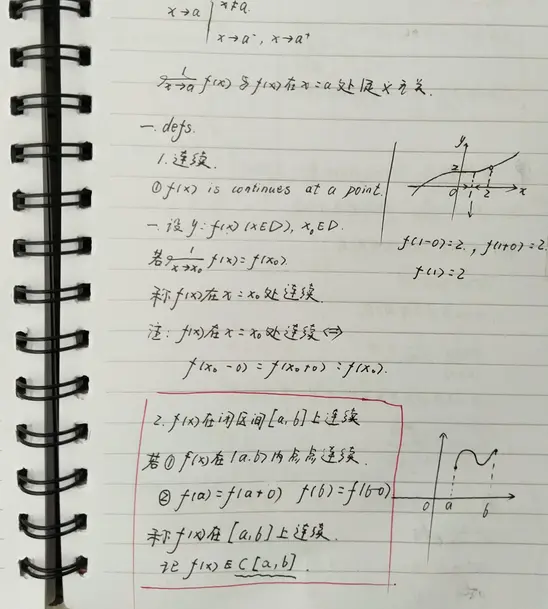 x→a | x≠a.
x→a⁻, x→a⁺
lim x→a f(x) 与 f(x) 在 x=a 处定义无关.
一. defs.
1. 连续.
① f(x) is continues at a point.
一 设 y: f(x) (x∈D), x₀∈D.
若 lim x→x₀ f(x) = f(x₀).
称 f(x) 在 x = x₀ 处连续.
注: f(x) 在 x = x₀ 处连续 ⇔
f(x₀ - 0) = f(x₀+0) = f(x₀).
y
2
0 1 2 x
f(1-0)=2., f(1+0)=2.
f(1)=2
2. f(x) 在闭区间 [a, b] 上连续
若 ① f(x) 在 (a.b) 内点点连续.
② f(a) = f(a+0) f(b) = f(b-0)
称 f(x) 在 [a, b] 上连续.
记 f(x) ∈ C[a, b].
0 a b